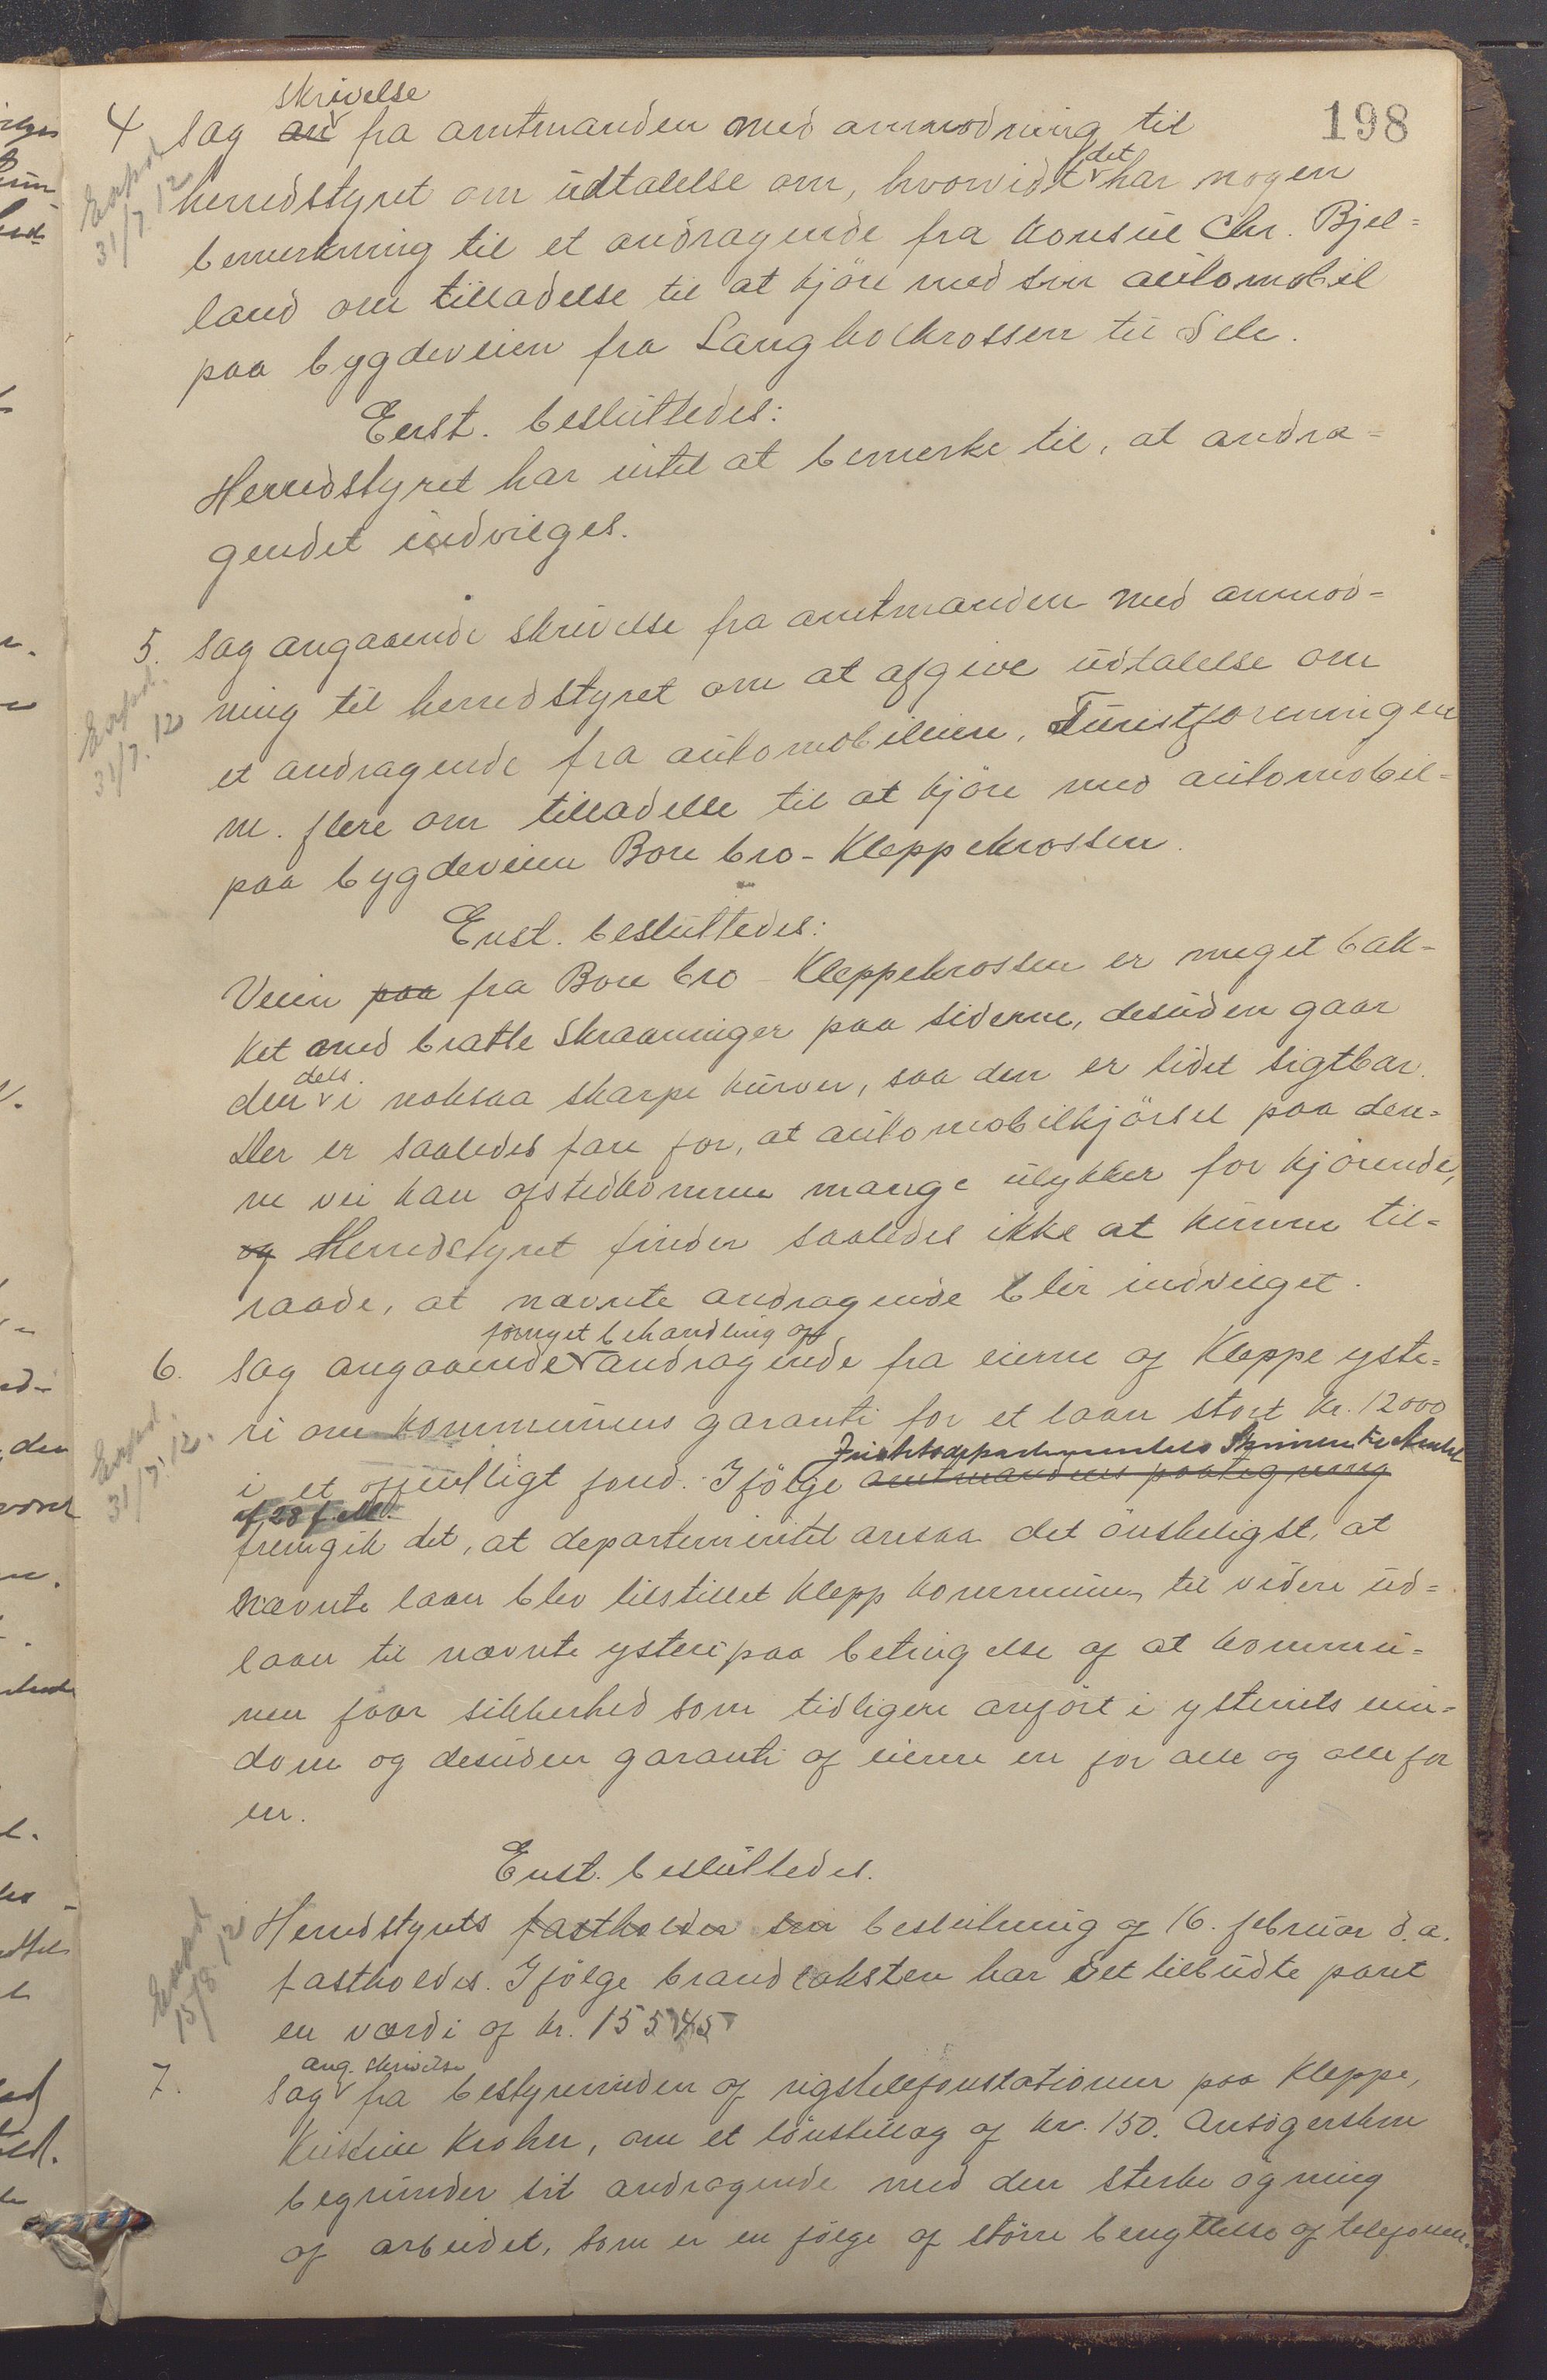 198
4 Sag an skrivelse fra amtmanden med anmodning til
Exped. 31/7. 12
herredstyret om udtalelse om, hvorvidt det har nogen
bemerkning til et andragende fra konsul Chr. Bjel=
land om tilladelse til at kjöre med sin automobil
paa bygdeveien fra Langholkrossen til Sele.
Enst. besluttedes:
Herredstyret har intet at bemerke til, at andra=
gendet indvilges.
5. Sag angaaende skrivelse fra amtmanden med anmod=
Exped. 31/7. 12
ning til herredstyret om at afgive udtalelse om
et andragende fra automobileiere, Turistforeningen
m. flere om tilladelse til at kjöre med automobil=
paa bygdeveien Bore bro - Kleppekrossen.
Enst. besluttedes:
Veien paa fra Bore bro - Kleppekrossen er meget bak-
ket med bratte skraaninger paa siderne, desuden gaar
den dels i noksaa skarpe kurver, saa den er lidet sigtbar.
Der er saaledes fare for, at automobilkjörsel paa den=
ne vei kan afstedkomme mange ulykker for kjörende,
og Herredstyret finder saaledes ikke at kunne til=
raade, at nævnte andragende blir indvilget.
6. Sag angaaende fornyet behandling af andragende fra eierne af Kleppe yste=
Exped. 31/7. 12.
ri om kommunens garanti for et laan stort kr. 12000
i et offentligt fond. Ifölge amtmandens paategning Justitsdepartementets Skrivelse til Amtet
af 28 f. M.
fremgik det, at departementet ansaa det önskeligst, at
nævnte laan blev tilstillet Klepp kommune til videre ud=
laan til nævnte ysteri paa betingelse af at kommu=
nen faar sikkerhed som tidligere anfört i ysteriets eien=
dom og desuden garanti af eierne en for alle og alle for
en.
Enst. besluttedes.
Exped 15/8. 12
Herredstyrets fastholder sin beslutning af 16. februar d. a.
fastholdes. Ifölge brandtaksten har det tilbudte pant
en værdi af kr. 15545
7. Sag ang. skrivelse fra bestyrerinden af rigstelefonstationen paa Kleppe,
Kristine Krohn, om et lönstillæg af kr. 150. Ansögersken
begrunder sit andragende med den sterke ögning
af arbeidet, som er en fölge af större benyttelse af telefonen.